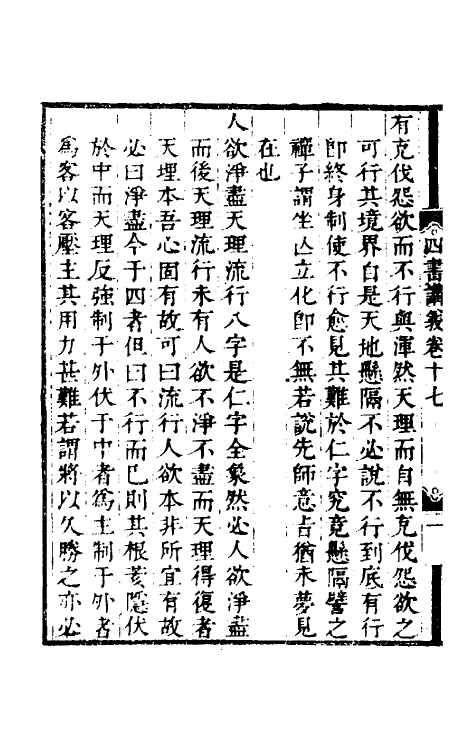 四書講義卷十七
二
有克伐怨欲而不行與渾然天理而自無克伐怨欲之
可行其境界自是天地懸隔不必說不行到底有行
即終身制使不行愈見其難於仁字究竟懸隔譬之
禪子謂坐亡立化卽不無若說先師意占猶未夢見
在也
人欲淨盡天理流行八字是仁字全象然必人欲淨盡
而後天理流行未有人欲不淨不盡而天理得復者
天理本吾心固有故可曰流行人欲本非所宜有故
必曰淨盡今于四者但曰不行而已則其根荄隱伏
於中而天理反強制于外伏于中者為主制于外者
為客以客壓主其用力甚難若謂將以久勝之亦必